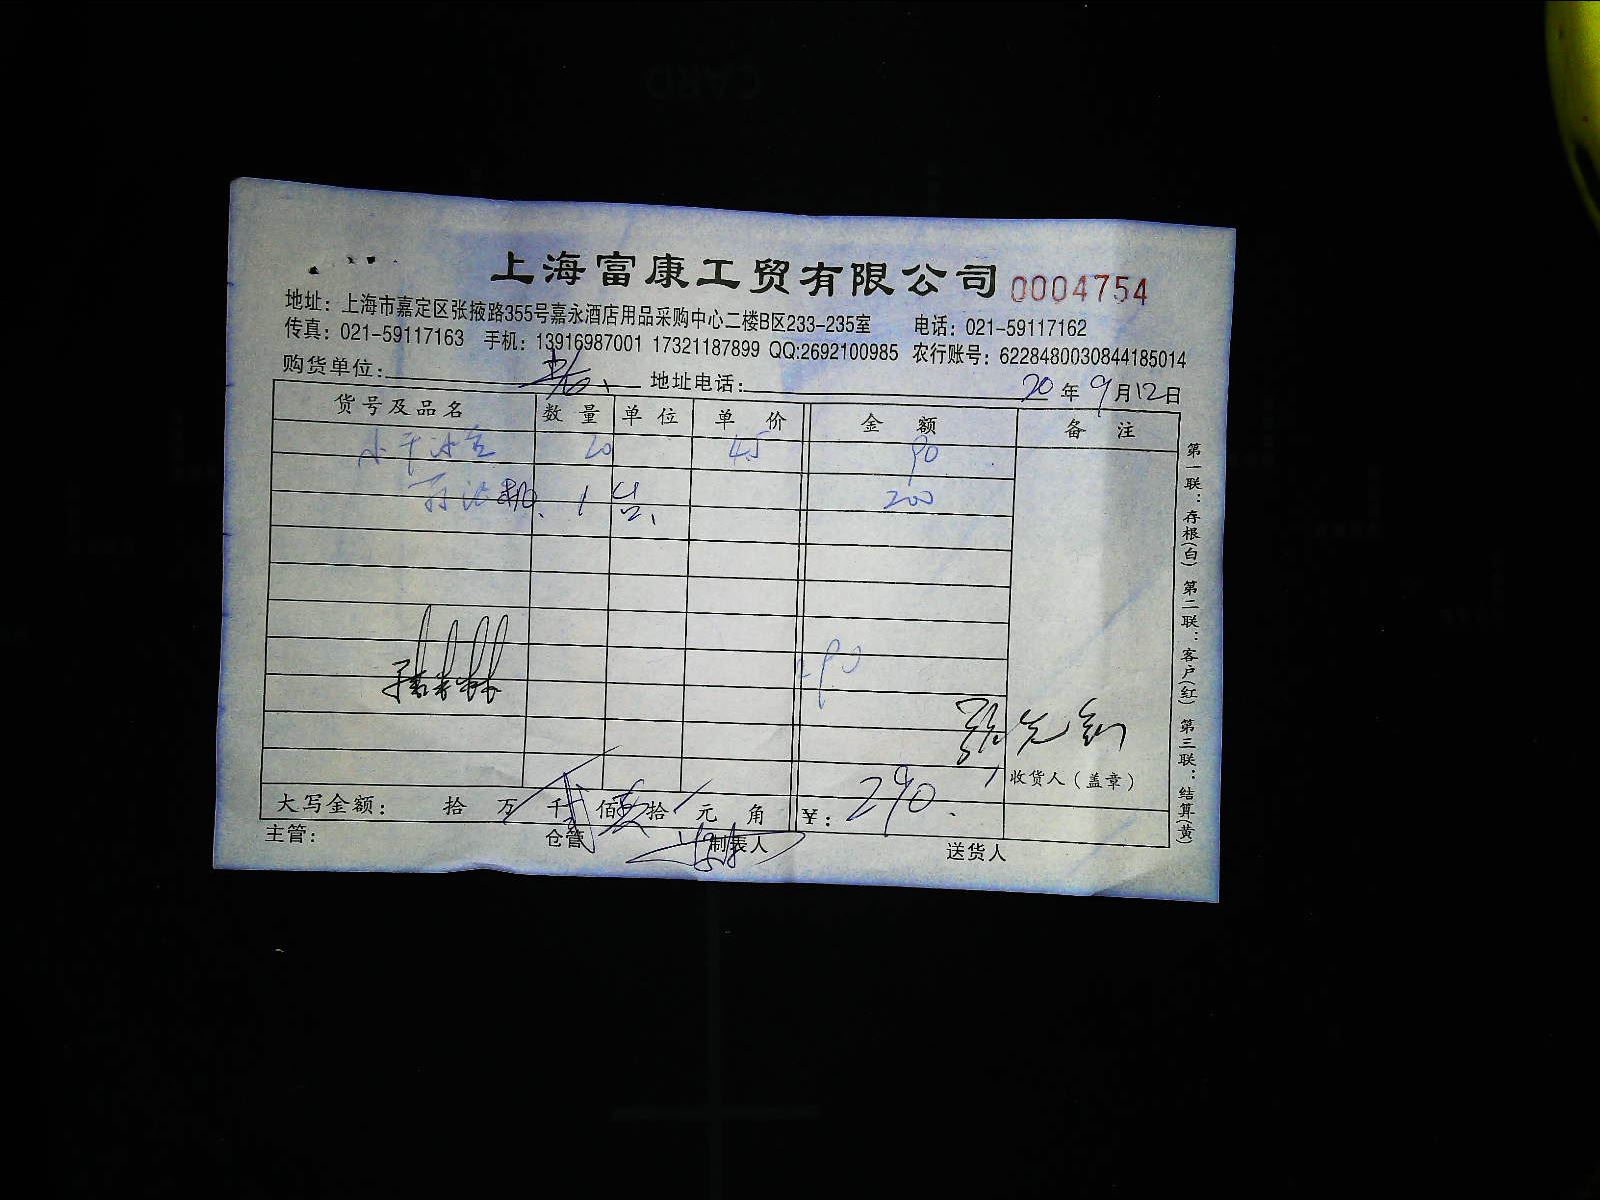 上海富康工贸有限公司 0004754
地址：上海市嘉定区张掖路355号嘉永酒店用品采购中心二楼B区233-235室 电话：021-59117162
传真：021-59117163 手机：13916987001 17321187899 QQ:2692100985 农行账号：6228480030844185014
购货单位： 地址电话： 20年9月12日
货号及品名 数量 单位 单价 金额 备注
20 4.5 90
1 台 200
290
收货人（盖章）
大写金额： 拾 万 千 佰 拾 元 角 ￥：290.
主管： 仓管 制表人 送货人
第一联：存根(白) 第二联：客户(红) 第三联：结算(黄)
CARD